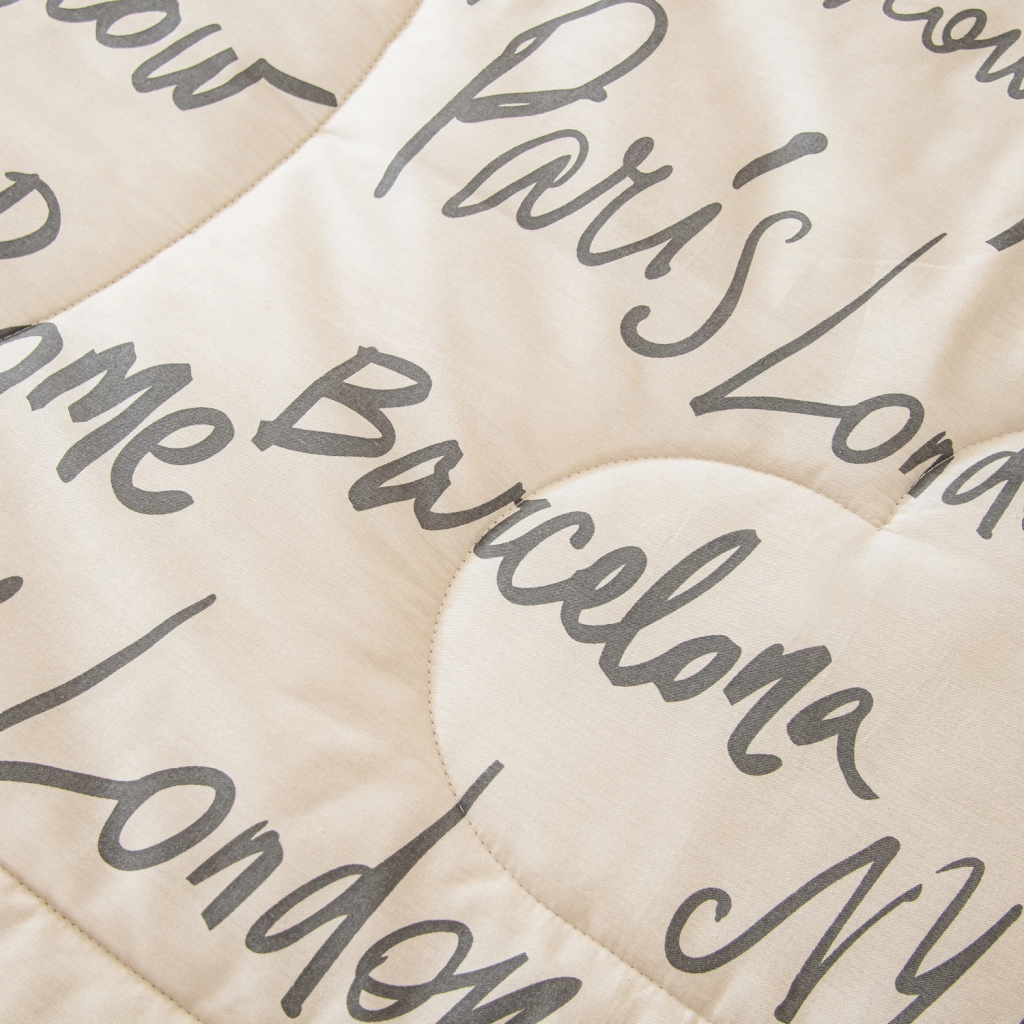 Paris London
ome Barcelona
London NY